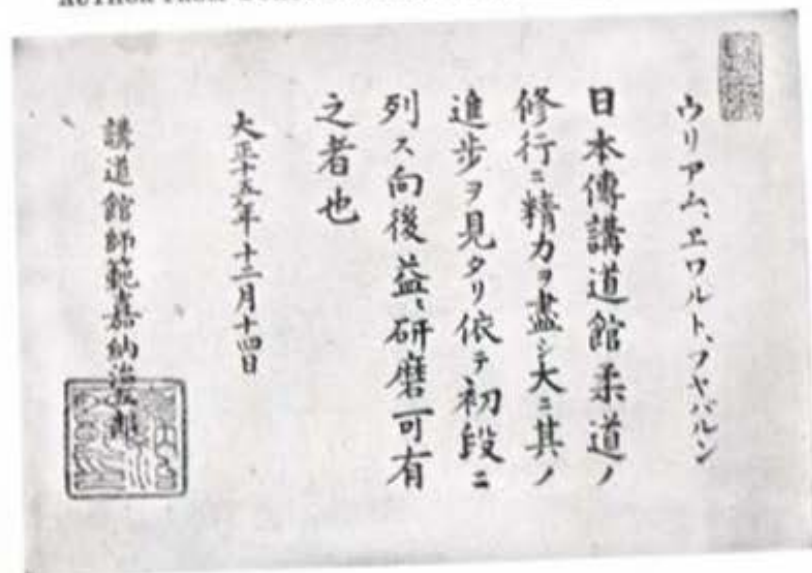 ウリアム、ヱワルト、フヤバルン
日本傳講道館柔道ノ
修行ニ精力ヲ盡シ大ニ其ノ
進歩ヲ見タリ依テ初段ニ
列ス向後益〻研磨可有
之者也
大正十五年十二月十四日
講道館師範嘉納治五郎